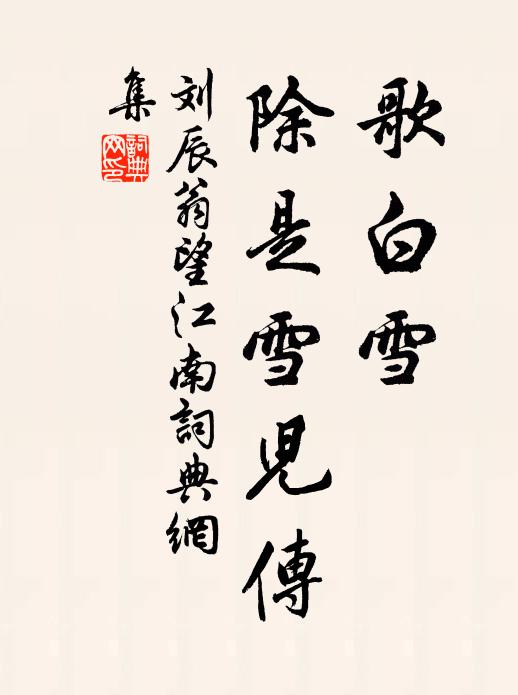 歌白雪
除是雪児傳
刘辰翁望江南詞典網
集
詞典
网印